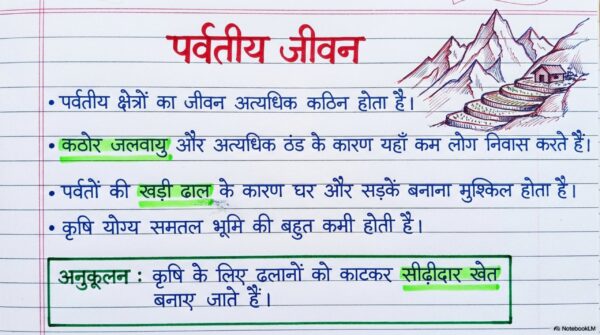 पर्वतीय जीवन
• पर्वतीय क्षेत्रों का जीवन अत्यधिक कठिन होता है।
• कठोर जलवायु और अत्यधिक ठंड के कारण यहाँ कम लोग निवास करते हैं।
• पर्वतों की खड़ी ढाल के कारण घर और सड़कें बनाना मुश्किल होता है।
• कृषि योग्य समतल भूमि की बहुत कमी होती है।
अनुकूलन : कृषि के लिए ढलानों को काटकर सीढ़ीदार खेत
बनाए जाते हैं।
NotebookLM